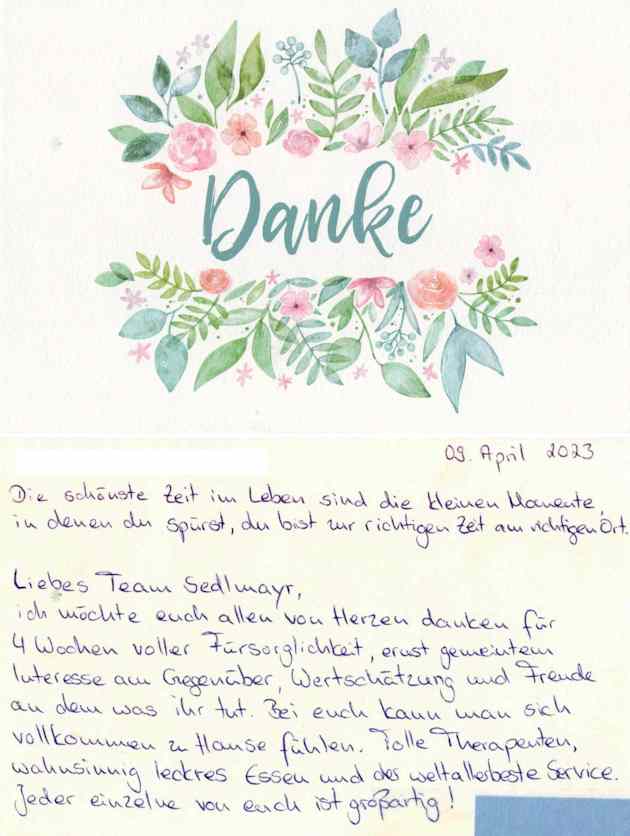 Danke
09. April 2023
Die schönste Zeit im Leben sind die kleinen Momente,
in denen du spürst, du bist zur richtigen Zeit am richtigen Ort.
Liebes Team Sedlmayr,
ich möchte euch allen von Herzen danken für
4 Wochen voller Fürsorglichkeit, ernst gemeintem
Interesse am Gegenüber, Wertschätzung und Freude
an dem was ihr tut. Bei euch kann man sich
vollkommen zu Hause fühlen. Tolle Therapeuten,
wahnsinnig leckres Essen und der weltallerbeste Service.
Jeder einzelne von euch ist großartig!